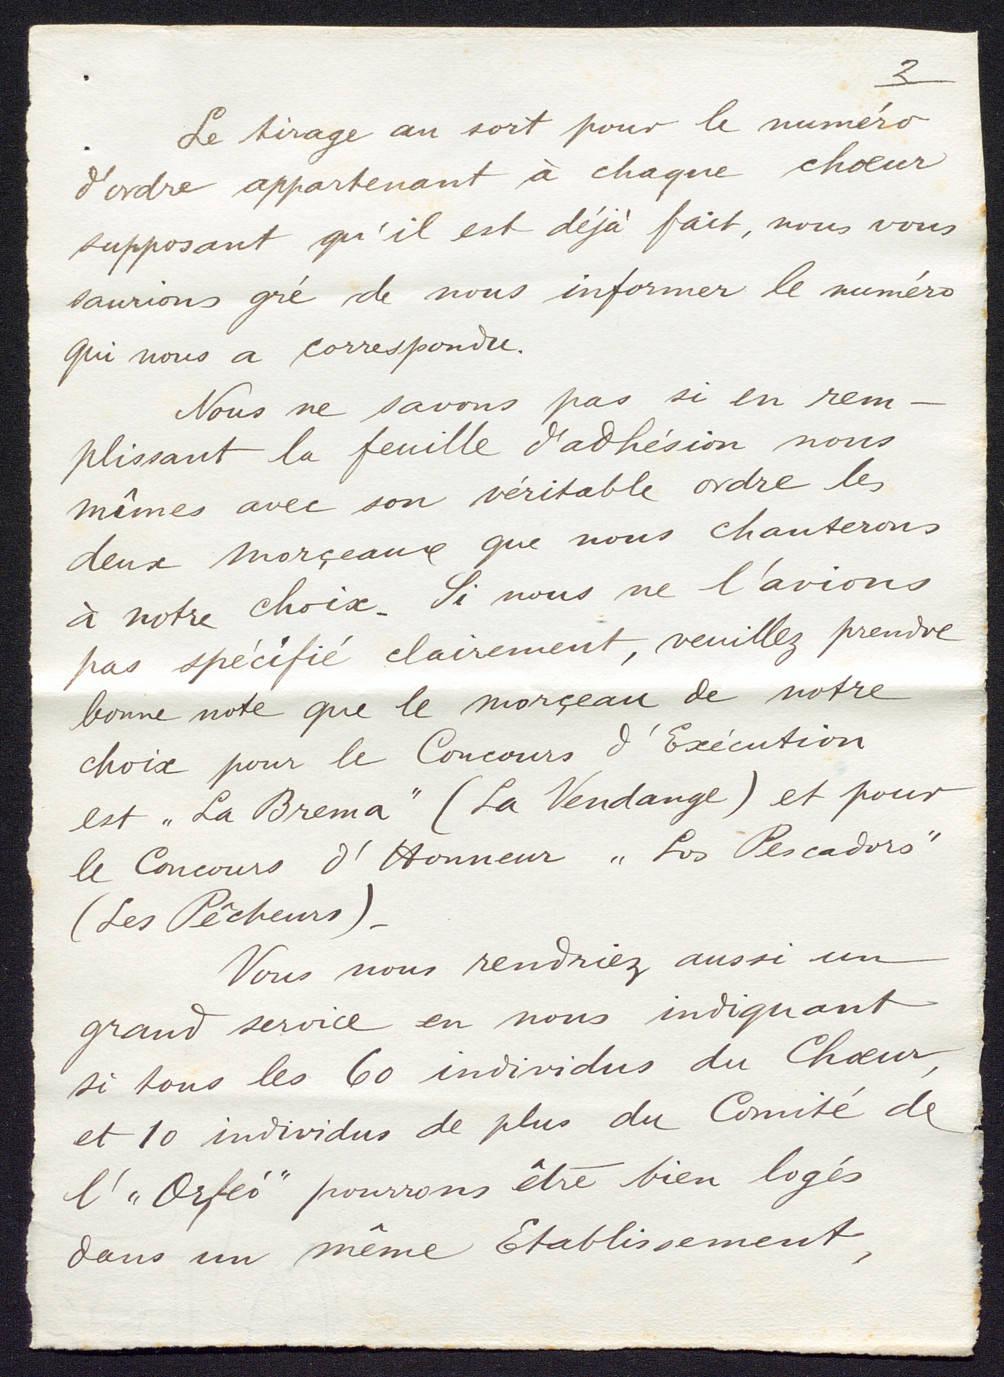 2
Le tirage au sort pour le numéro
d'ordre appartenant à chaque chœur
supposant qu'il est déjà fait, nous vous
saurions gré de nous informer le numéro
qui nous a correspondu.
Nous ne savons pas si en rem-
plissant la feuille d'adhésion nous
mîmes avec son véritable ordre les
deux morçeaux que nous chanterons
à notre choix. Si nous ne l'avions
pas spécifié clairement, veuillez prendre
bonne note que le morçeau de notre
choix pour le Concours d'Exécution
est „La Brema" (La Vendange) et pour
le Concours d'Honneur „Los Pescadors"
(Les Pêcheurs)_
Vous nous rendriez aussi un
grand service en nous indiquant
si tous les 60 individus du Chœur,
et 10 individus de plus du Comité de
l'„Orfeó" pourrons être bien logés
dans un même Etablissement,